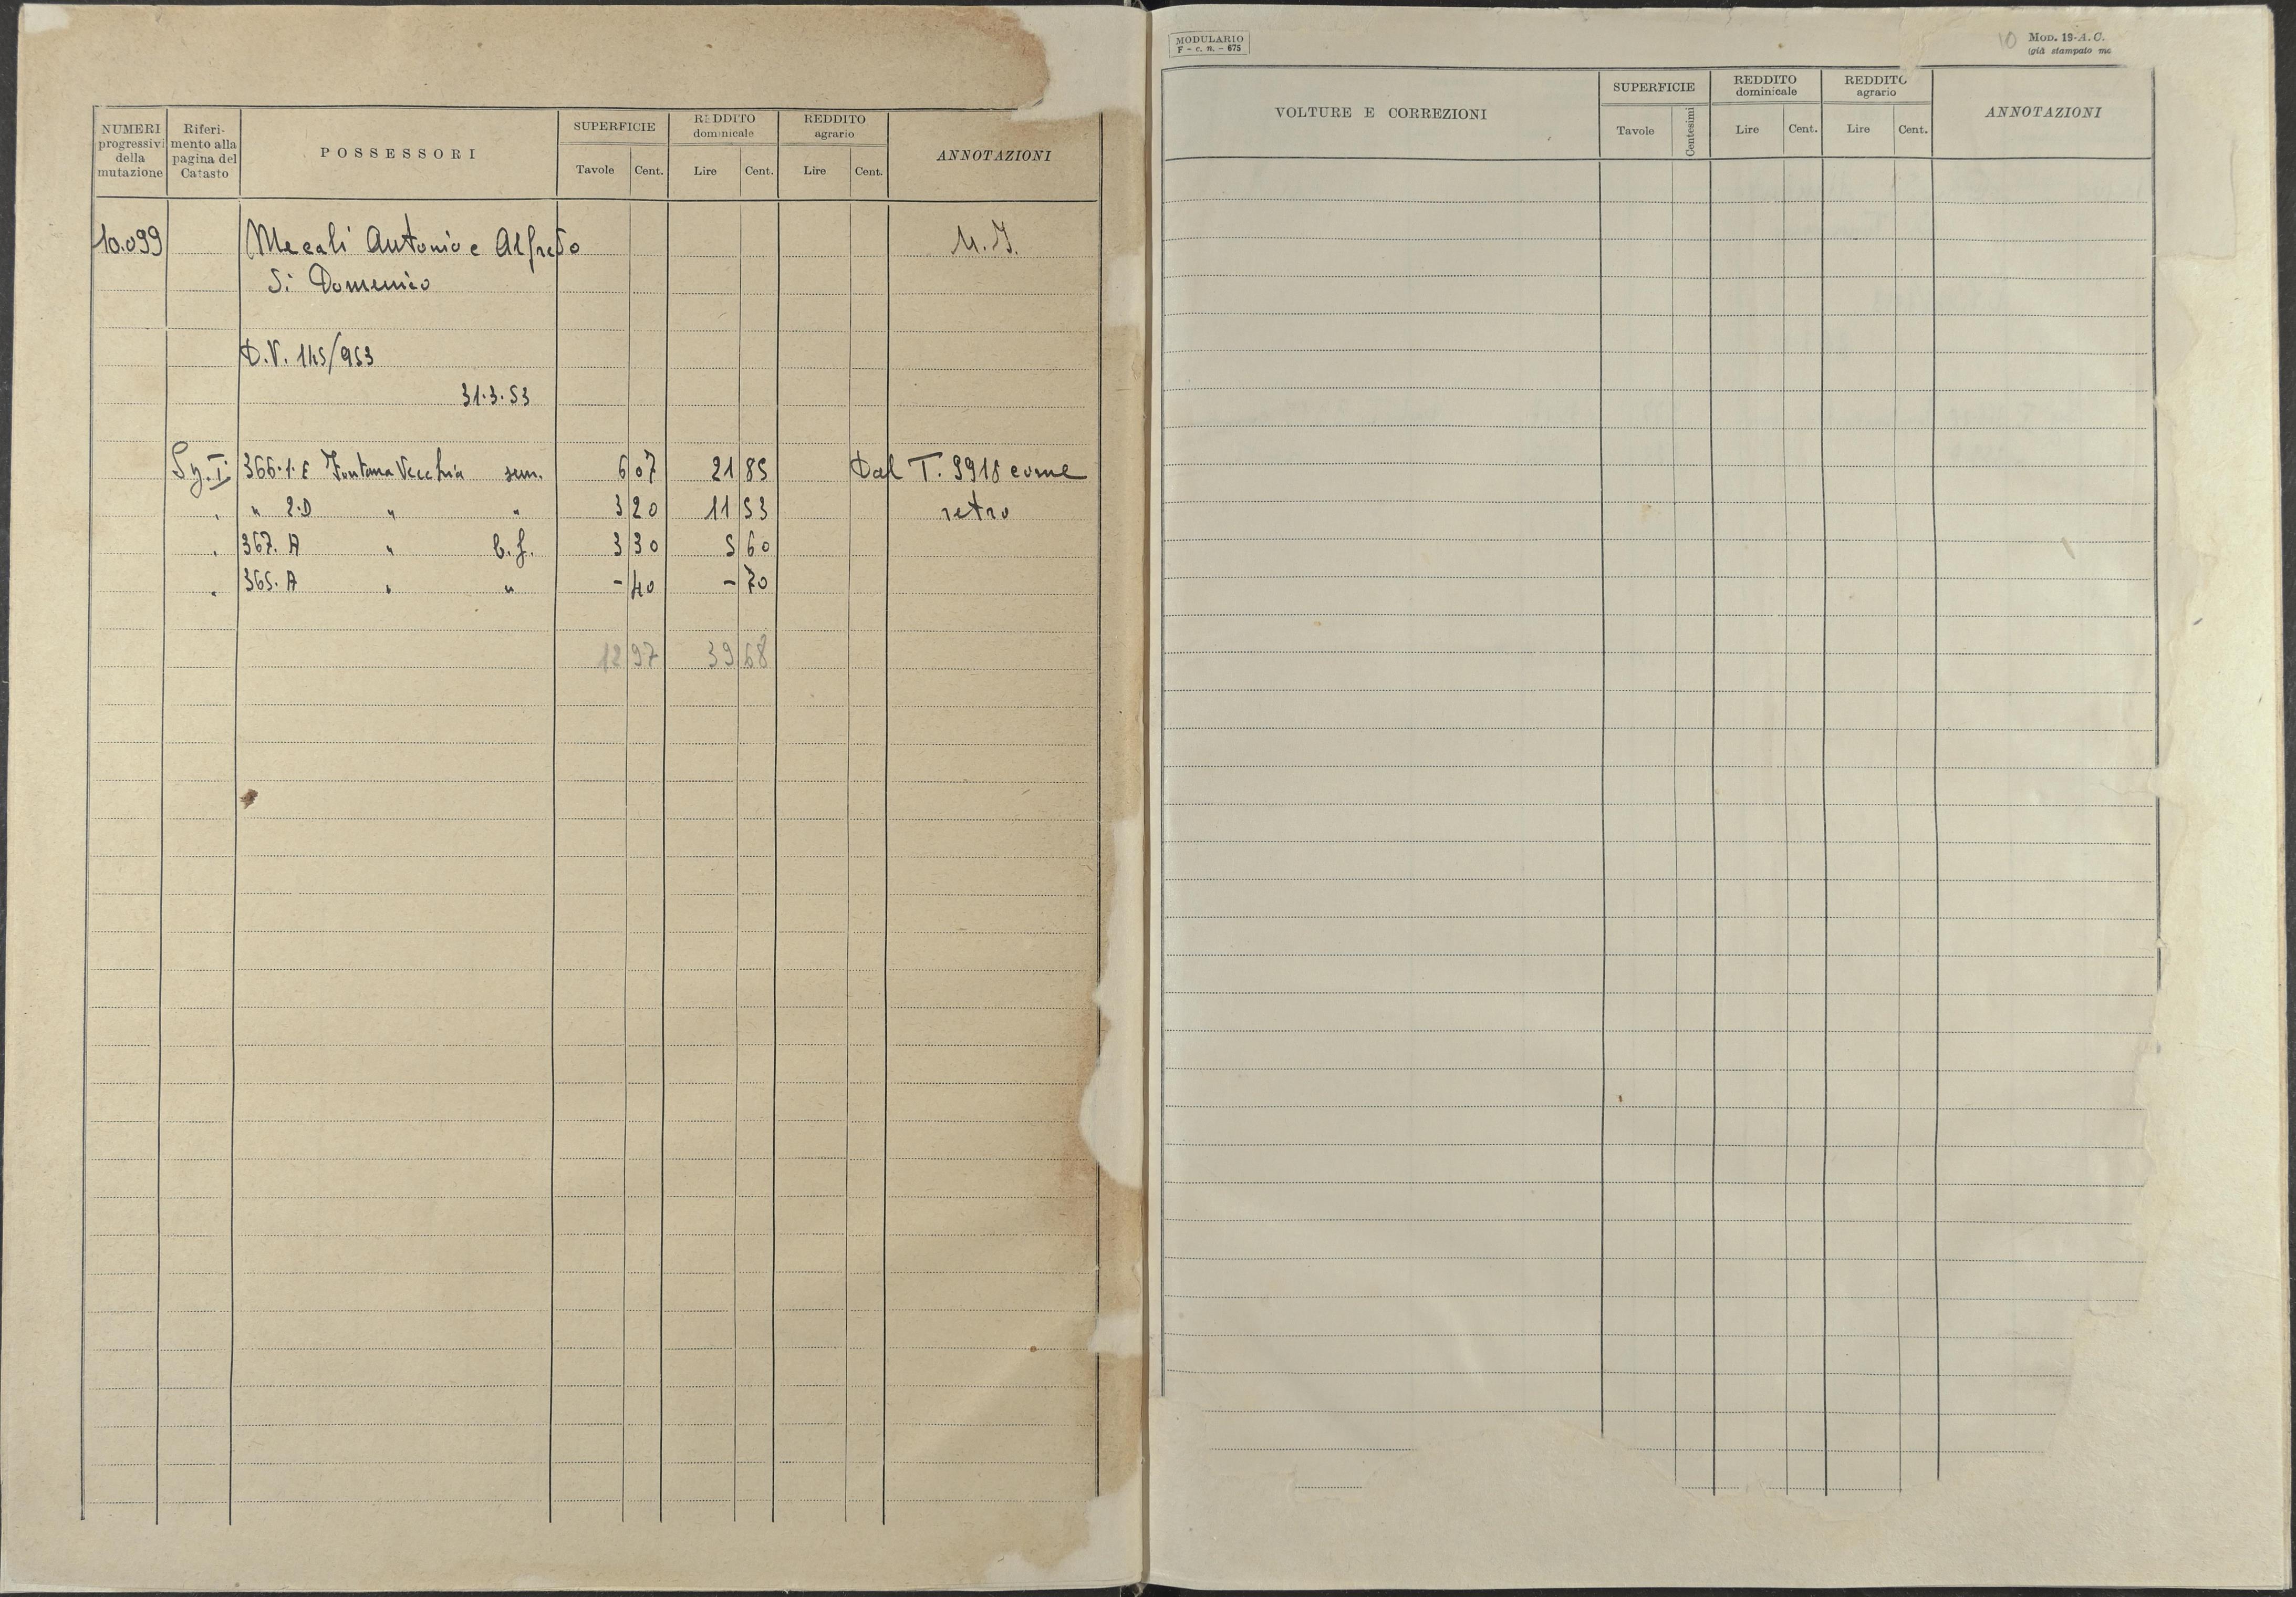 NUMERI progressivi della mutazione | Riferimento alla pagina del Catasto | POSSESSORI | SUPERFICIE Tavole Cent. | REDDITO dominicale Lire Cent. | REDDITO agrario Lire Cent. | ANNOTAZIONI
10.099 Mecali Antonio e Alfredo M.I.
di Domenico
D.V. 145/953
31.3.53
Sz. I 366.1.E Fontana Vecchia sem. 6 07 21 85 Dal T. 9918 come
" " 2.D " " 3 20 11 53 retro
" 367. A " b.f. 3 30 5 60
" 365. A " " - 40 - 70
12 97 39 68
MODULARIO
F - c. n. - 675
10 MOD. 19-A.C.
(già stampato mo
VOLTURE E CORREZIONI | SUPERFICIE Tavole Centesimi | REDDITO dominicale Lire Cent. | REDDITO agrario Lire Cent. | ANNOTAZIONI